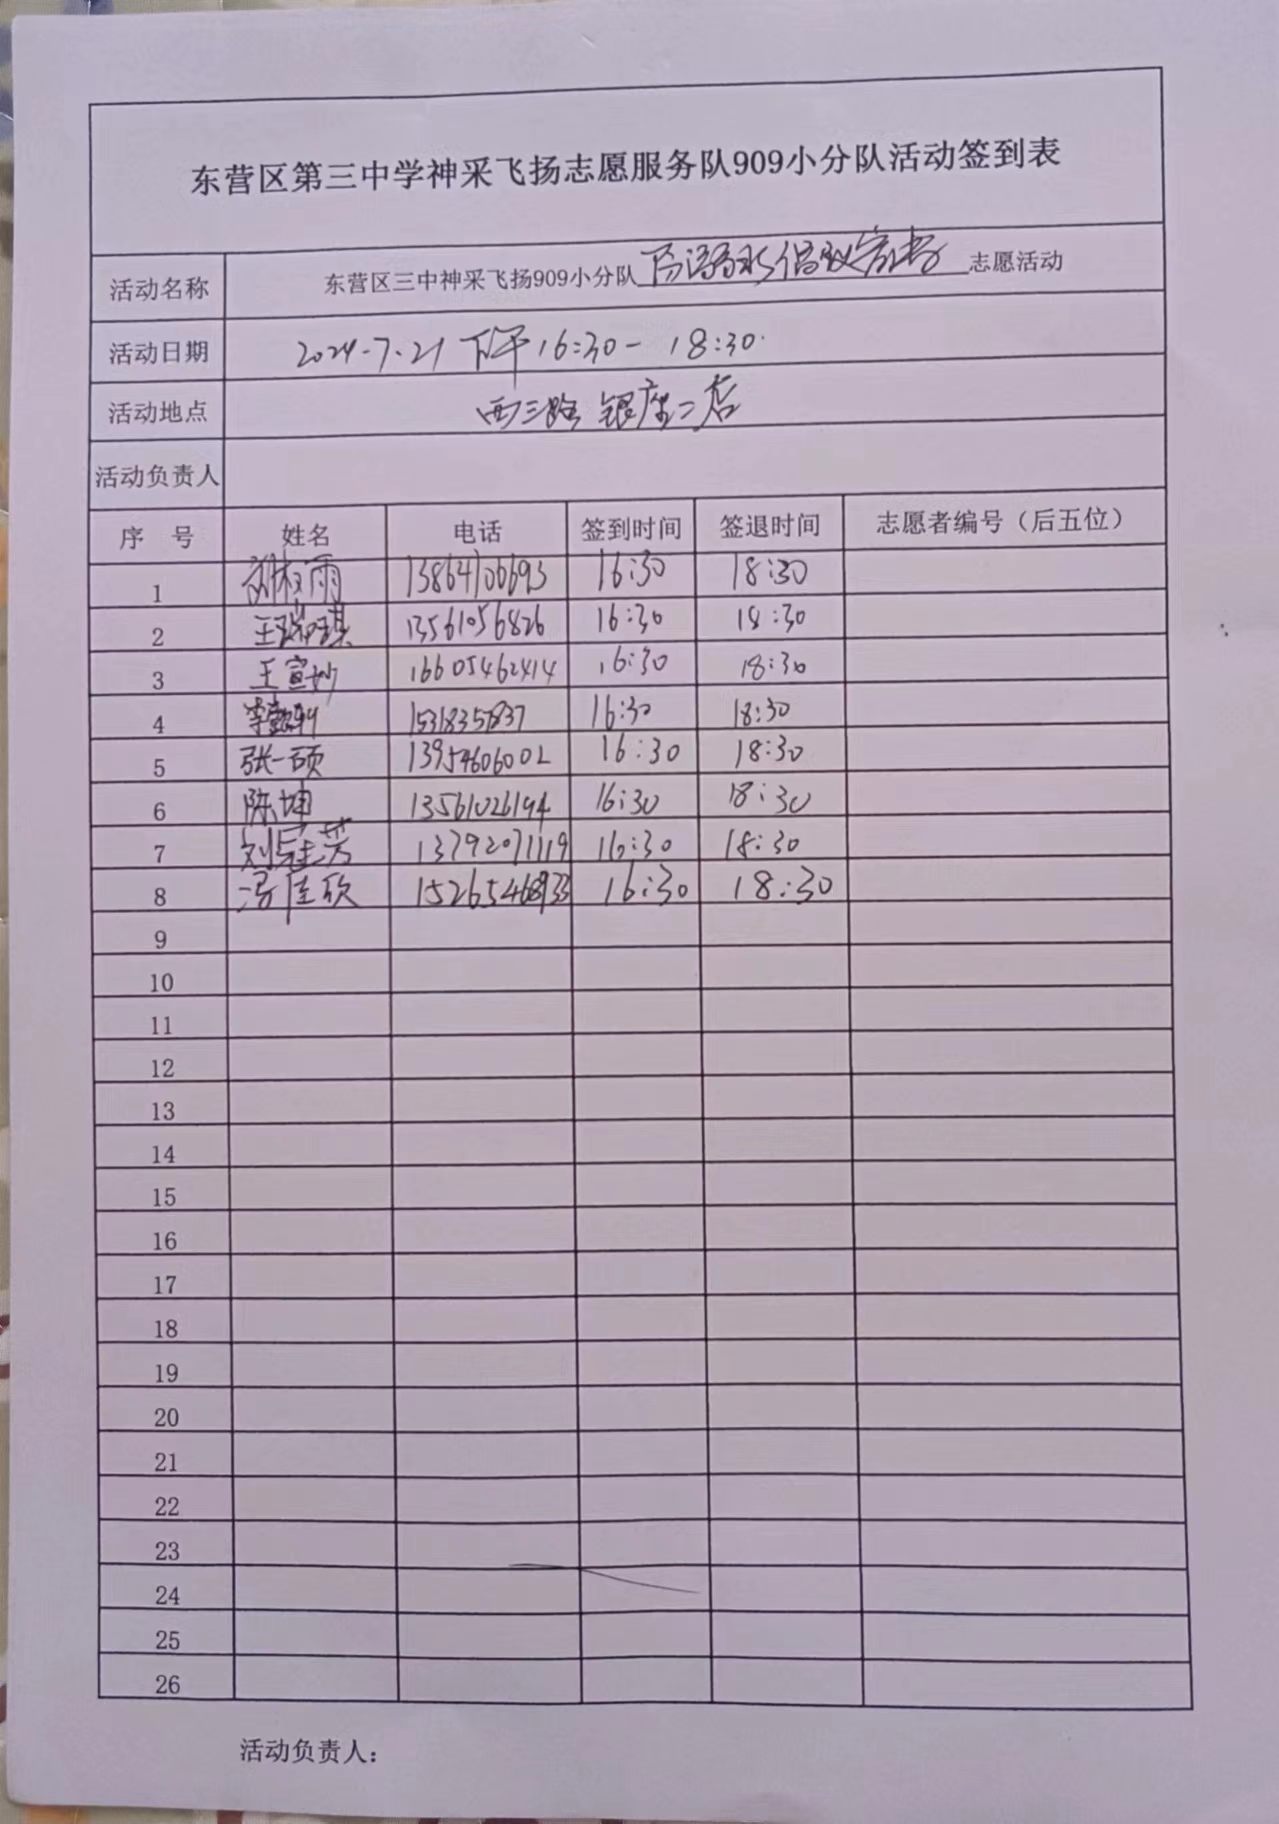 东营区第三中学神采飞扬志愿服务队909小分队活动签到表
活动名称 东营区三中神采飞扬909小分队防溺水倡议宣传志愿活动
活动日期 2024.7.21 下午16:30- 18:30.
活动地点 西三路 银座二店
活动负责人
序 号 姓名 电话 签到时间 签退时间 志愿者编号（后五位）
1 13864106693 16:30 18:30
2 王瑞琪 13561056826 16:30 18:30
3 王宣妙 16605462414 16:30 18:30
4 15318357837 16:30 18:30
5 张一硕 13954606002 16:30 18:30
6 陈坤 13561026194 16:30 18:30
7 13792071119 16:30 18:30
8 冯佳欣 15265468933 16:30 18:30
9
10
11
12
13
14
15
16
17
18
19
20
21
22
23
24
25
26
活动负责人：